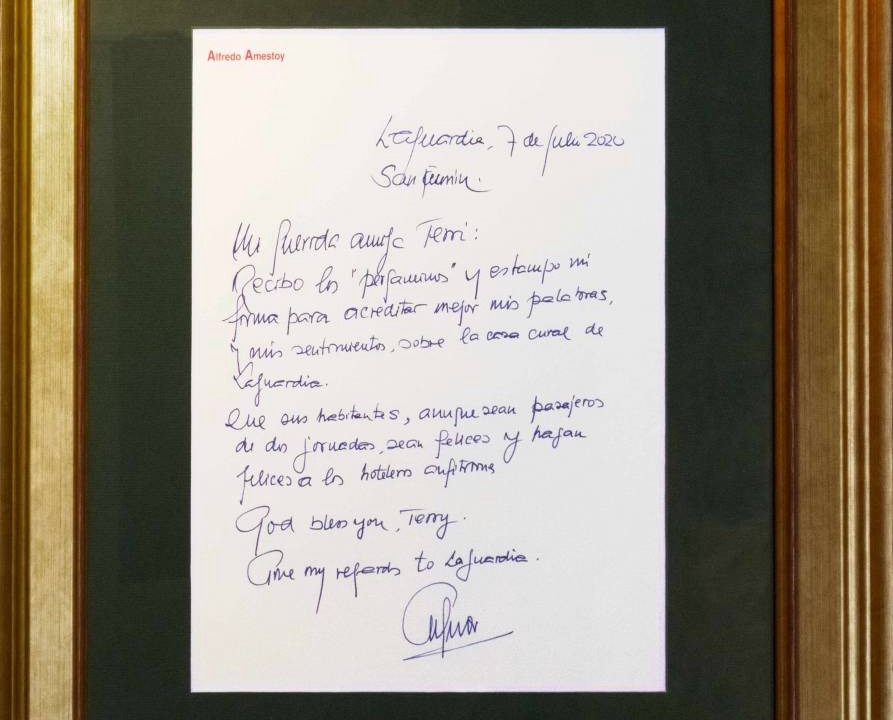 Alfredo Amestoy
Laguardia, 7 de Julio 2020
San Fermín.
Mi querida amiga Terri:
Recibo los "pergaminos" y estampo mi
firma para acreditar mejor mis palabras,
y mis sentimientos, sobre la casa cural de
Laguardia.
Que sus habitantes, aunque sean pasajeros
de dos jornadas, sean felices y hagan
felices a los hoteleros anfitriones
God bless you, Terry.
Give my regards to Laguardia.